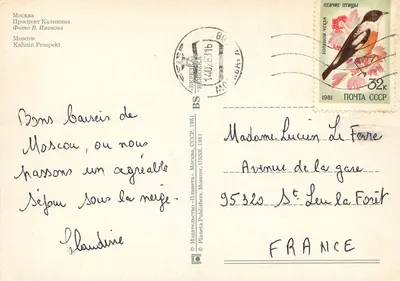 Москва
Проспект Калинина
Фото В. Иванова
Moscow
Kalinin Prospekt
Bons Baisers de
Moscou, ou nous
passons un agréable
séjour sous la neige.
Claudine
© Издательство «Планета». Москва, СССР, 1981
© Planeta Publishers, Moscow, USSR, 1981
ПЕВЧИЕ ПТИЦЫ
ЧЕРНОГОЛОВЫЙ ЧЕКАН
32к
1981 ПОЧТА СССР
Madame Lucien Le Ferre
Avenue de la gare
95320 St Leu la Forêt
FRANCE